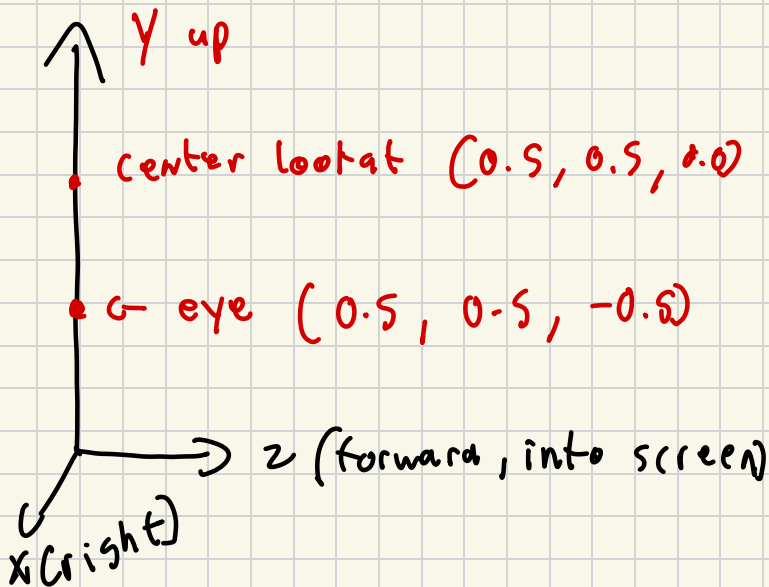 Y up
center lookat (0.5, 0.5, 0.0)
← eye (0.5, 0.5, -0.5)
z (forward, into screen)
x (right)